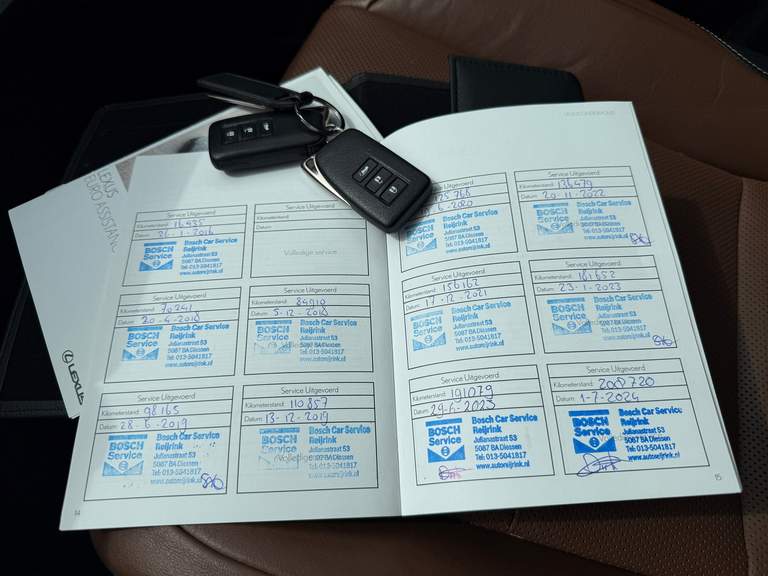 LEXUS
EURO ASSISTANCE
LEXUS
Service Uitgevoerd
Kilometerstand: 16435
Datum:
BOSCH Service
Bosch Car Service
Reijrink
Julianastraat 53
5087 BA Diessen
Tel: 013-5041817
www.autoreijrink.nl
Service Uitgevoerd
Kilometerstand:
Datum:
Volledige service
Service Uitgevoerd
Kilometerstand: 70241
Datum: 20-4-2018
BOSCH Service
Bosch Car Service
Reijrink
Julianastraat 53
5087 BA Diessen
Tel: 013-5041817
www.autoreijrink.nl
Service Uitgevoerd
Kilometerstand: 84910
Datum: 5-12-2018
BOSCH Service
Bosch Car Service
Reijrink
Julianastraat 53
5087 BA Diessen
Tel: 013-5041817
www.autoreijrink.nl
Service Uitgevoerd
Kilometerstand: 98165
Datum: 28-6-2019
BOSCH Service
Bosch Car Service
Reijrink
Julianastraat 53
5087 BA Diessen
Tel: 013-5041817
www.autoreijrink.nl
Service Uitgevoerd
Kilometerstand: 110857
Datum: 13-12-2019
BOSCH Service
Bosch Car Service
Reijrink
Julianastraat 53
5087 BA Diessen
Tel: 013-5041817
www.autoreijrink.nl
14
Service Uitgevoerd
6-2020
BOSCH Service
Bosch Car Service
Reijrink
Julianastraat 53
5087 BA Diessen
Tel: 013-5041817
www.autoreijrink.nl
Service Uitgevoerd
Kilometerstand: 136479
Datum: 20-11-2022
BOSCH Service
Bosch Car Service
Reijrink
Julianastraat 53
5087 BA Diessen
Tel: 013-5041817
www.autoreijrink.nl
Service Uitgevoerd
Kilometerstand: 156162
Datum: 17-12-2021
BOSCH Service
Bosch Car Service
Reijrink
Julianastraat 53
5087 BA Diessen
Tel: 013-5041817
www.autoreijrink.nl
Service Uitgevoerd
Kilometerstand:
Datum: 23-1-2023
BOSCH Service
Bosch Car Service
Reijrink
Julianastraat 53
5087 BA Diessen
Tel: 013-5041817
www.autoreijrink.nl
Service Uitgevoerd
Kilometerstand: 191079
Datum: 29-6-2023
BOSCH Service
Bosch Car Service
Reijrink
Julianastraat 53
5087 BA Diessen
Tel: 013-5041817
www.autoreijrink.nl
Service Uitgevoerd
Kilometerstand:
Datum: 1-7-2024
BOSCH Service
Bosch Car Service
Reijrink
Julianastraat 53
5087 BA Diessen
Tel: 013-5041817
www.autoreijrink.nl
15